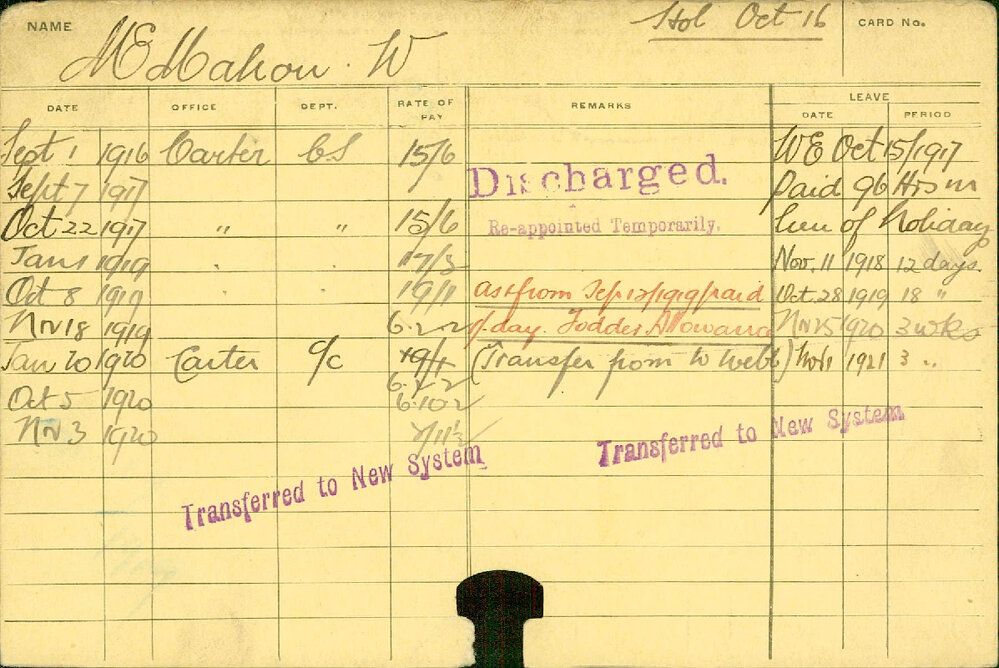 NAME McMahon. W Hol Oct 16 CARD No.
DATE OFFICE DEPT. RATE OF PAY REMARKS LEAVE
DATE PERIOD
Sept 1 1916 Carter CS 15/6 WE Oct 15/1917
Sept 7 1917 Discharged. Paid 96 Hrs in
Oct 22 1917 " " 15/6 Re-appointed Temporarily. lieu of holiday
Jan 1 1919 17/3 Nov. 11 1918 12 days.
Oct 8 1919 19/11 as from Sep 12/1919 paid Oct 28 1919 18 "
Nov 18 1919 6.2.2 1/- day. Fodder Allowance Nov 15 1920 3 wks
Jan 20 1920 Carter G/C 19/11 (Transfer from W Webb) Nov 1 1921 3 "
6.2.2
Oct 5 1920 6.10.2
Nov 3 1920 7/11½
Transferred to New System
Transferred to New System